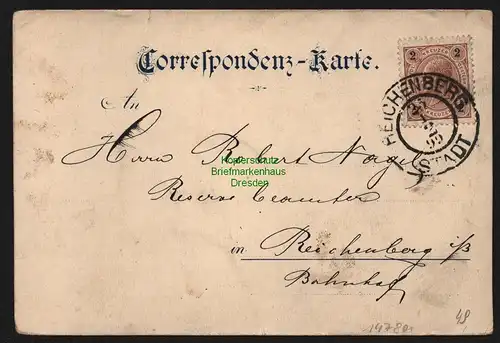 Correspondenz-Karte.
2 KREUZER 2
REICHENBERG
99
STADT
An
Herrn Robert
Kopierschutz
Briefmarkenhaus
Dresden
Reserve Beamter
in Reichenberg i/B
Bahnhof